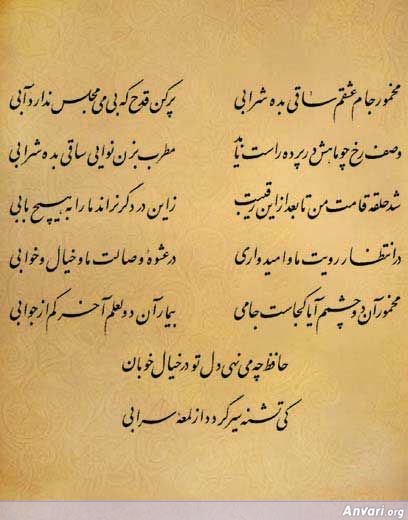 مخمور جام عشقم ساقی بده شرابی پر کن قدح که بی می مجلس ندارد آبی
وصف رخ چو ماهش در پرده راست ناید مطرب بزن نوایی ساقی بده شرابی
شد حلقه قامت من تا بعد از این رقیبت زاین در دگر نراند ما را به هیچ بابی
در انتظار رویت ما و امیدواری در عشوهٔ وصالت ما و خیال و خوابی
مخمور آن دو چشم آیا کجاست جامی بیمار آن دو لعلم آخر کم از جوابی
حافظ چه می نهی دل تو در خیال خوبان
کی تشنه سیر گردد از لمعهٔ سرابی
Anvari.org